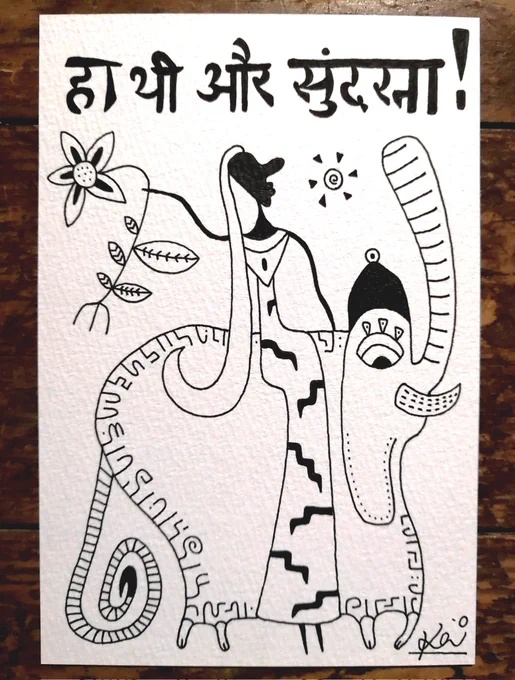 हाथी और सुंदरता!
Kai